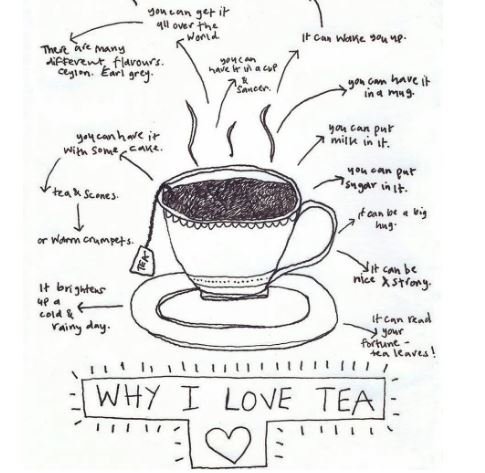 you can get it
all over the
world
It can wake you up.
There are many
different, flavours.
ceylon. Earl grey.
you can
have it in a cup
&
saucer.
you can have it
in a mug.
you can put
milk in it.
you can have it
with some cake.
you can put
sugar in it.
tea & scones.
it can be a big
hug.
or warm crumpets.
TEA
it can be
nice & strong.
It brightens
up a
cold &
rainy day.
It can read
your
fortune -
tea leaves!
WHY I LOVE TEA